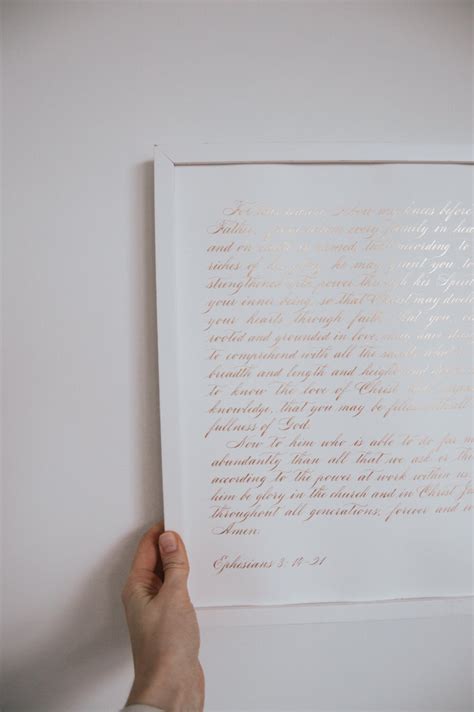 For this reason I bow my knees before
Father, from whom every family in hea
and on earth is named, that according to
riches of his glory he may grant you to
strengthened with power through his Spiri
your inner being, so that Christ may dwe
your hearts through faith that you
rooted and grounded in love, may have stren
to comprehend with all the saints what
breadth and length and height and
to know the love of Christ that
knowledge, that you may be filled
fullness of God.
Now to him who is able to do far m
abundantly than all that we ask or th
according to the power at work within u
him be glory in the church and in Christ
throughout all generations, forever and
Amen.
Ephesians 3:14-21